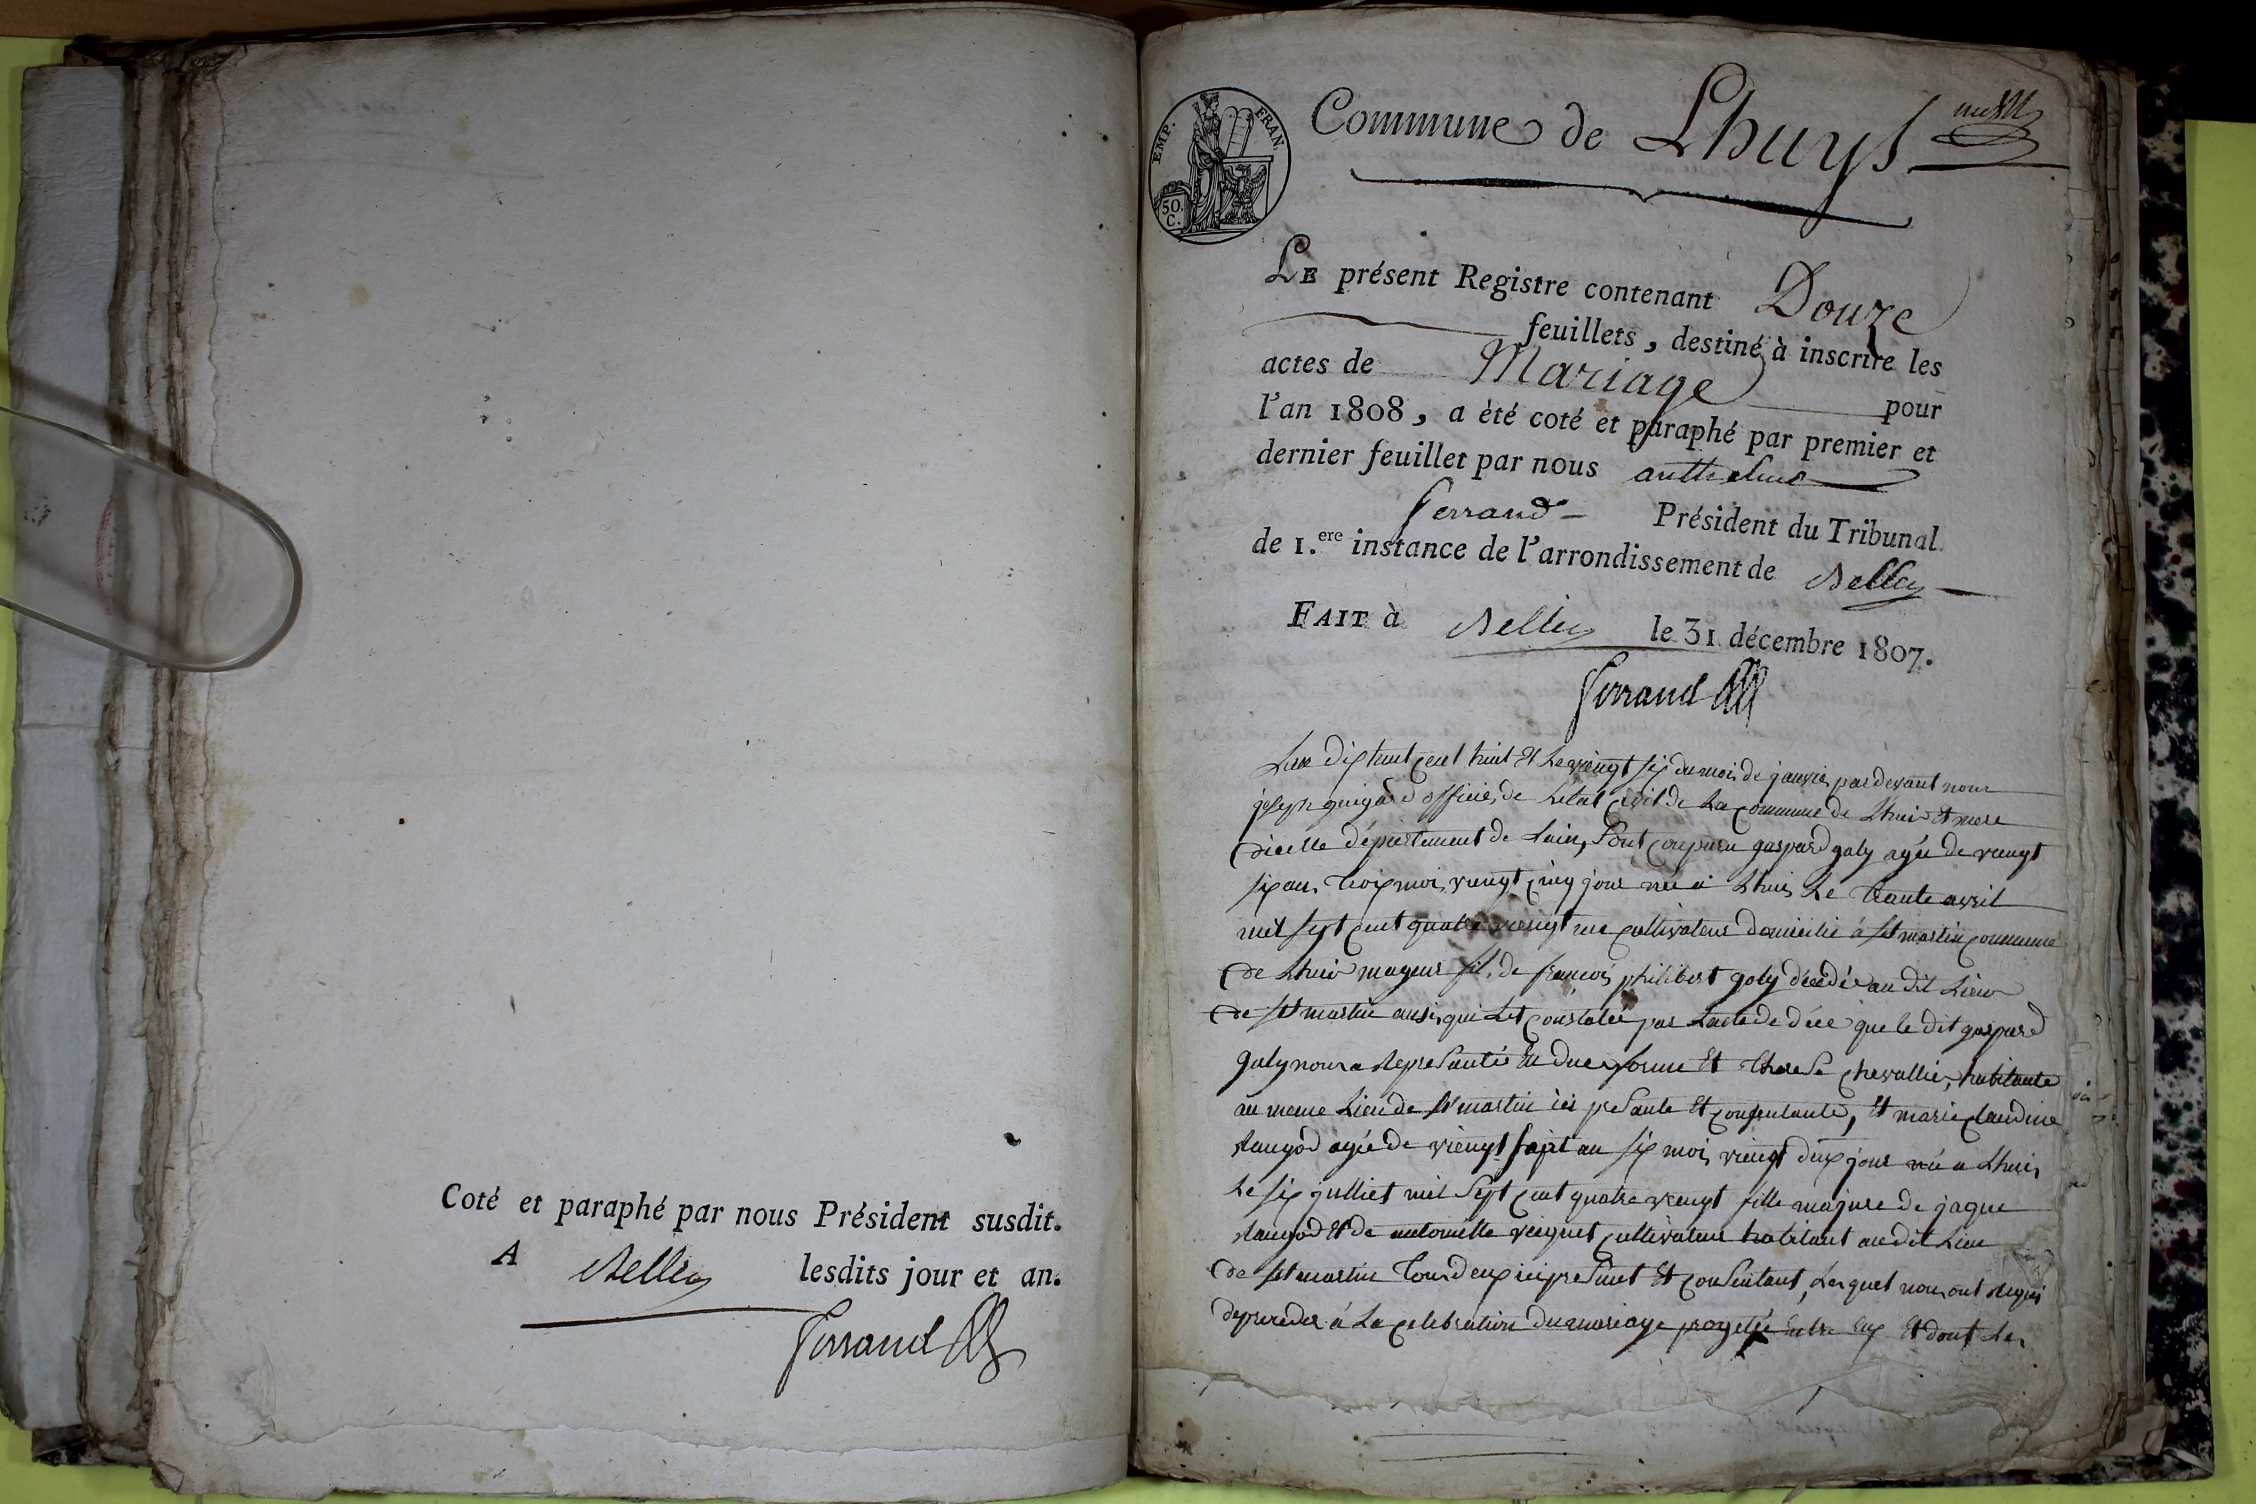 Coté et paraphé par nous Président susdit.
A Belley lesdits jour et an.
Ferrand
EMP. FRAN.
50.
C.
Commune de Lhuys
LE présent Registre contenant Douze
feuillets, destiné à inscrire les
actes de Mariage pour
l'an 1808, a été coté et paraphé par premier et
dernier feuillet par nous anthelme
ferrand Président du Tribunal
de 1.ere instance de l'arrondissement de Belley
FAIT à Belley le 31 décembre 1807.
Ferrand
Lan dix huit cent huit Et le vengt six du mois de janvier par devant nous
joseph guigard officier de Letat Civil de La Commune de Lhuis Et mere
dicelle département de Lain, Sont Comparu gaspard galy agée de vengt
six an, troix mois, vengt cinq jour née à Lhuis Le trante avril
mil sept cent quatre vengt une cultivateur domicilié à st martin commune
de Lhuis mageur fils de francois philibert galy décédée au dit Lieu
de st martin ausi, qui Let constatée par Lacte de décé que le dit gaspard
galy nous a Represantée En due forme Et therese chevallier, habitante
au meme Lieu de st martin ici presante Et consentante, Et marie claudine
Rangod agée de viengt sept an six mois viengt deux jour née a Lhuis
Le six julliet mil Sept cent quatre vengt fille majure de jaque
Rangod Et de antoinette cultivateur habitant au dit Lieu
de st martin tous deux ici presant Et consentant, Lesquel nous ont Requi
de proceder à La celebration du mariage progetée Entre Eux Et dont les